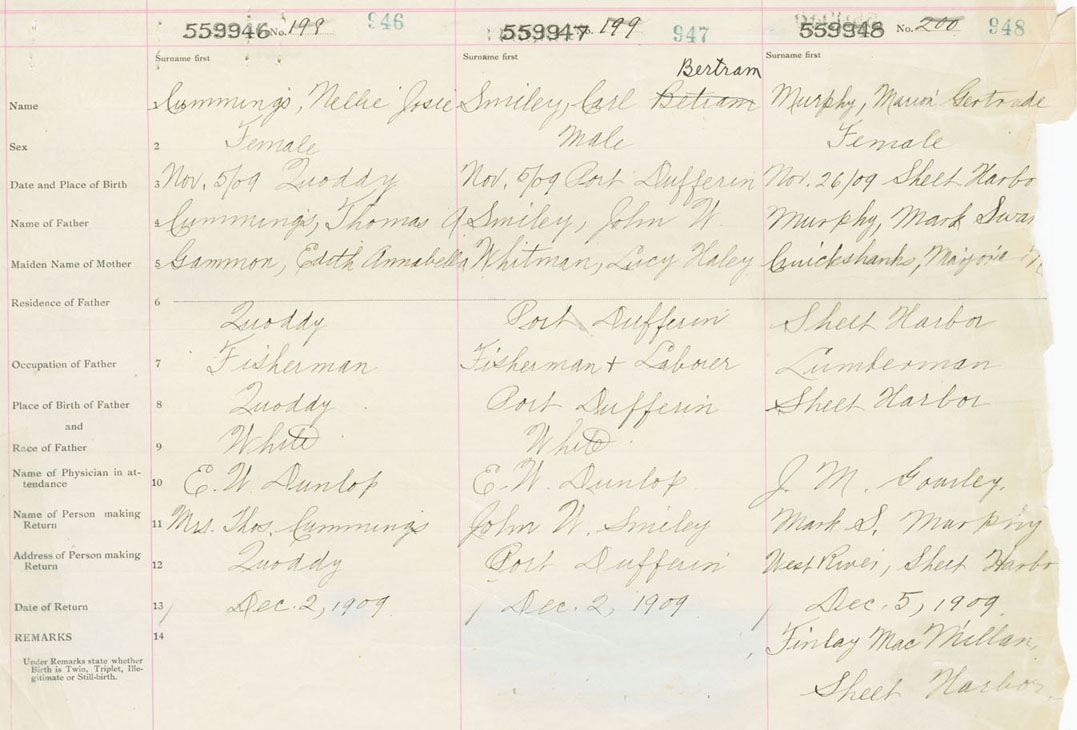 559946 No. 198 946 559947 No. 199 947 559948 No. 200 948
Surname first Surname first Surname first
Bertram
Name Cummings, Nellie Josie Smiley, Carl Betram Murphy, Marion Gertrude
Sex 2 Female Male Female
Date and Place of Birth 3 Nov. 5/09 Quoddy Nov. 5/09 Port Dufferin Nov. 26/09 Sheet Harbo
Name of Father 4 Cummings, Thomas A Smiley, John W. Murphy, Mark Swa
Maiden Name of Mother 5 Gammon, Edith Annabella Whitman, Lucy Haley Cruickshanks, Marjorie
Residence of Father 6
Quoddy Port Dufferin Sheet Harbor
Occupation of Father 7 Fisherman Fisherman + Laborer Lumberman
Place of Birth of Father 8 Quoddy Port Dufferin Sheet Harbor
and
Race of Father 9 White White
Name of Physician in at-
tendance 10 E. W. Dunlop E. W. Dunlop J. M. Gourley.
Name of Person making
Return 11 Mrs. Thos. Cummings John W. Smiley Mark S. Murphy
Address of Person making
Return 12 Quoddy Port Dufferin West River, Sheet Harbo
Date of Return 13 Dec. 2, 1909 Dec. 2, 1909 Dec. 5, 1909
REMARKS 14 Finlay MacMillan,
Under Remarks state whether
Birth is Twin, Triplet, Ille-
gitimate or Still-birth.
Sheet Harbor.